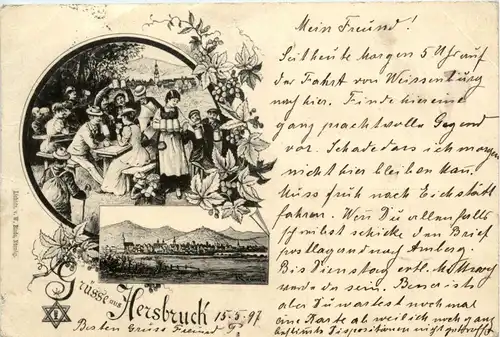 Mein Freund!
Seit heute Morgen 5 Uhr auf
der Fahrt von Weissenburg
nach hier. Finde hier eine
ganz prachtvolle Gegend
vor. Schade dass ich morgen
nicht hier bleiben kan.
Muss früh nach Eichstätt
fahren. Wen Du allenfalls
schreibst schicke den Brief
postlagernd nach Amberg.
Bis Dienstag
werde da sein.
aber Du wartest noch mal
eine Karte ab weil ich noch ganz
bestimmte Dispositionen nicht getroffen
Grüsse aus Hersbruck 15.5.97
Besten Gruss Freund